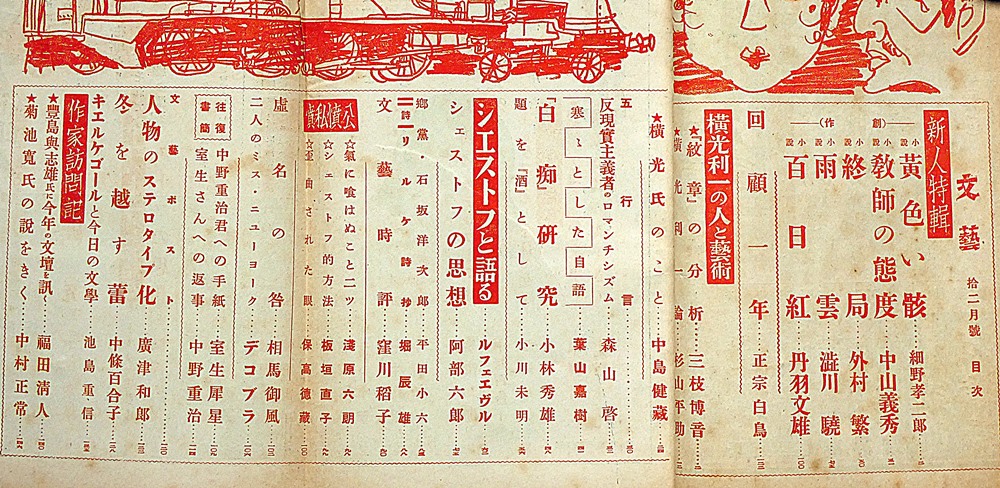 文藝 拾二月號 目次
新人特輯
(創作)
小説 黄色い骸 細野孝二郎
小説 教師の態度 中山義秀
小説 終局 外村繁
小説 雨雲 澁川驍
小説 百日紅 丹羽文雄
回顧一年 正宗白鳥
横光利一の人と藝術
★『紋章』の分析 三枝博音
★横光利一論 杉山平助
★横光氏のこと 中島健藏
五行言
反現實主義者のロマンチシズム 森山啓
寒々とした自語 葉山嘉樹
『白痴』研究 小林秀雄
題を『酒』として 小川未明
シエストフと語る ルフェエヴル
シェストフの思想 阿部六郎
郷黨・石坂洋次郎 平田小六
【詩】リルケ詩抄 堀辰雄
文藝時評 窪川稻子
公憤私憤
★氣に喰はぬこと二ツ 淺原六朗
★シェストフ的方法 板垣直子
★歪曲された眼 保高徳藏
虚名の咎 相馬御風
二人のミス・ニューヨーク デコブラ
往復書簡
中野重治君への手紙 室生犀星
室生さんへの返事 中野重治
文藝ポスト
人物のステロタイプ化 廣津和郎
冬を越す蕾 中條百合子
キエルケゴールと今日の文學 池島重信
作家訪問記
★豐島與志雄氏に今年の文壇を訊く 福田清人
★菊池寛氏の說をきく 中村正常